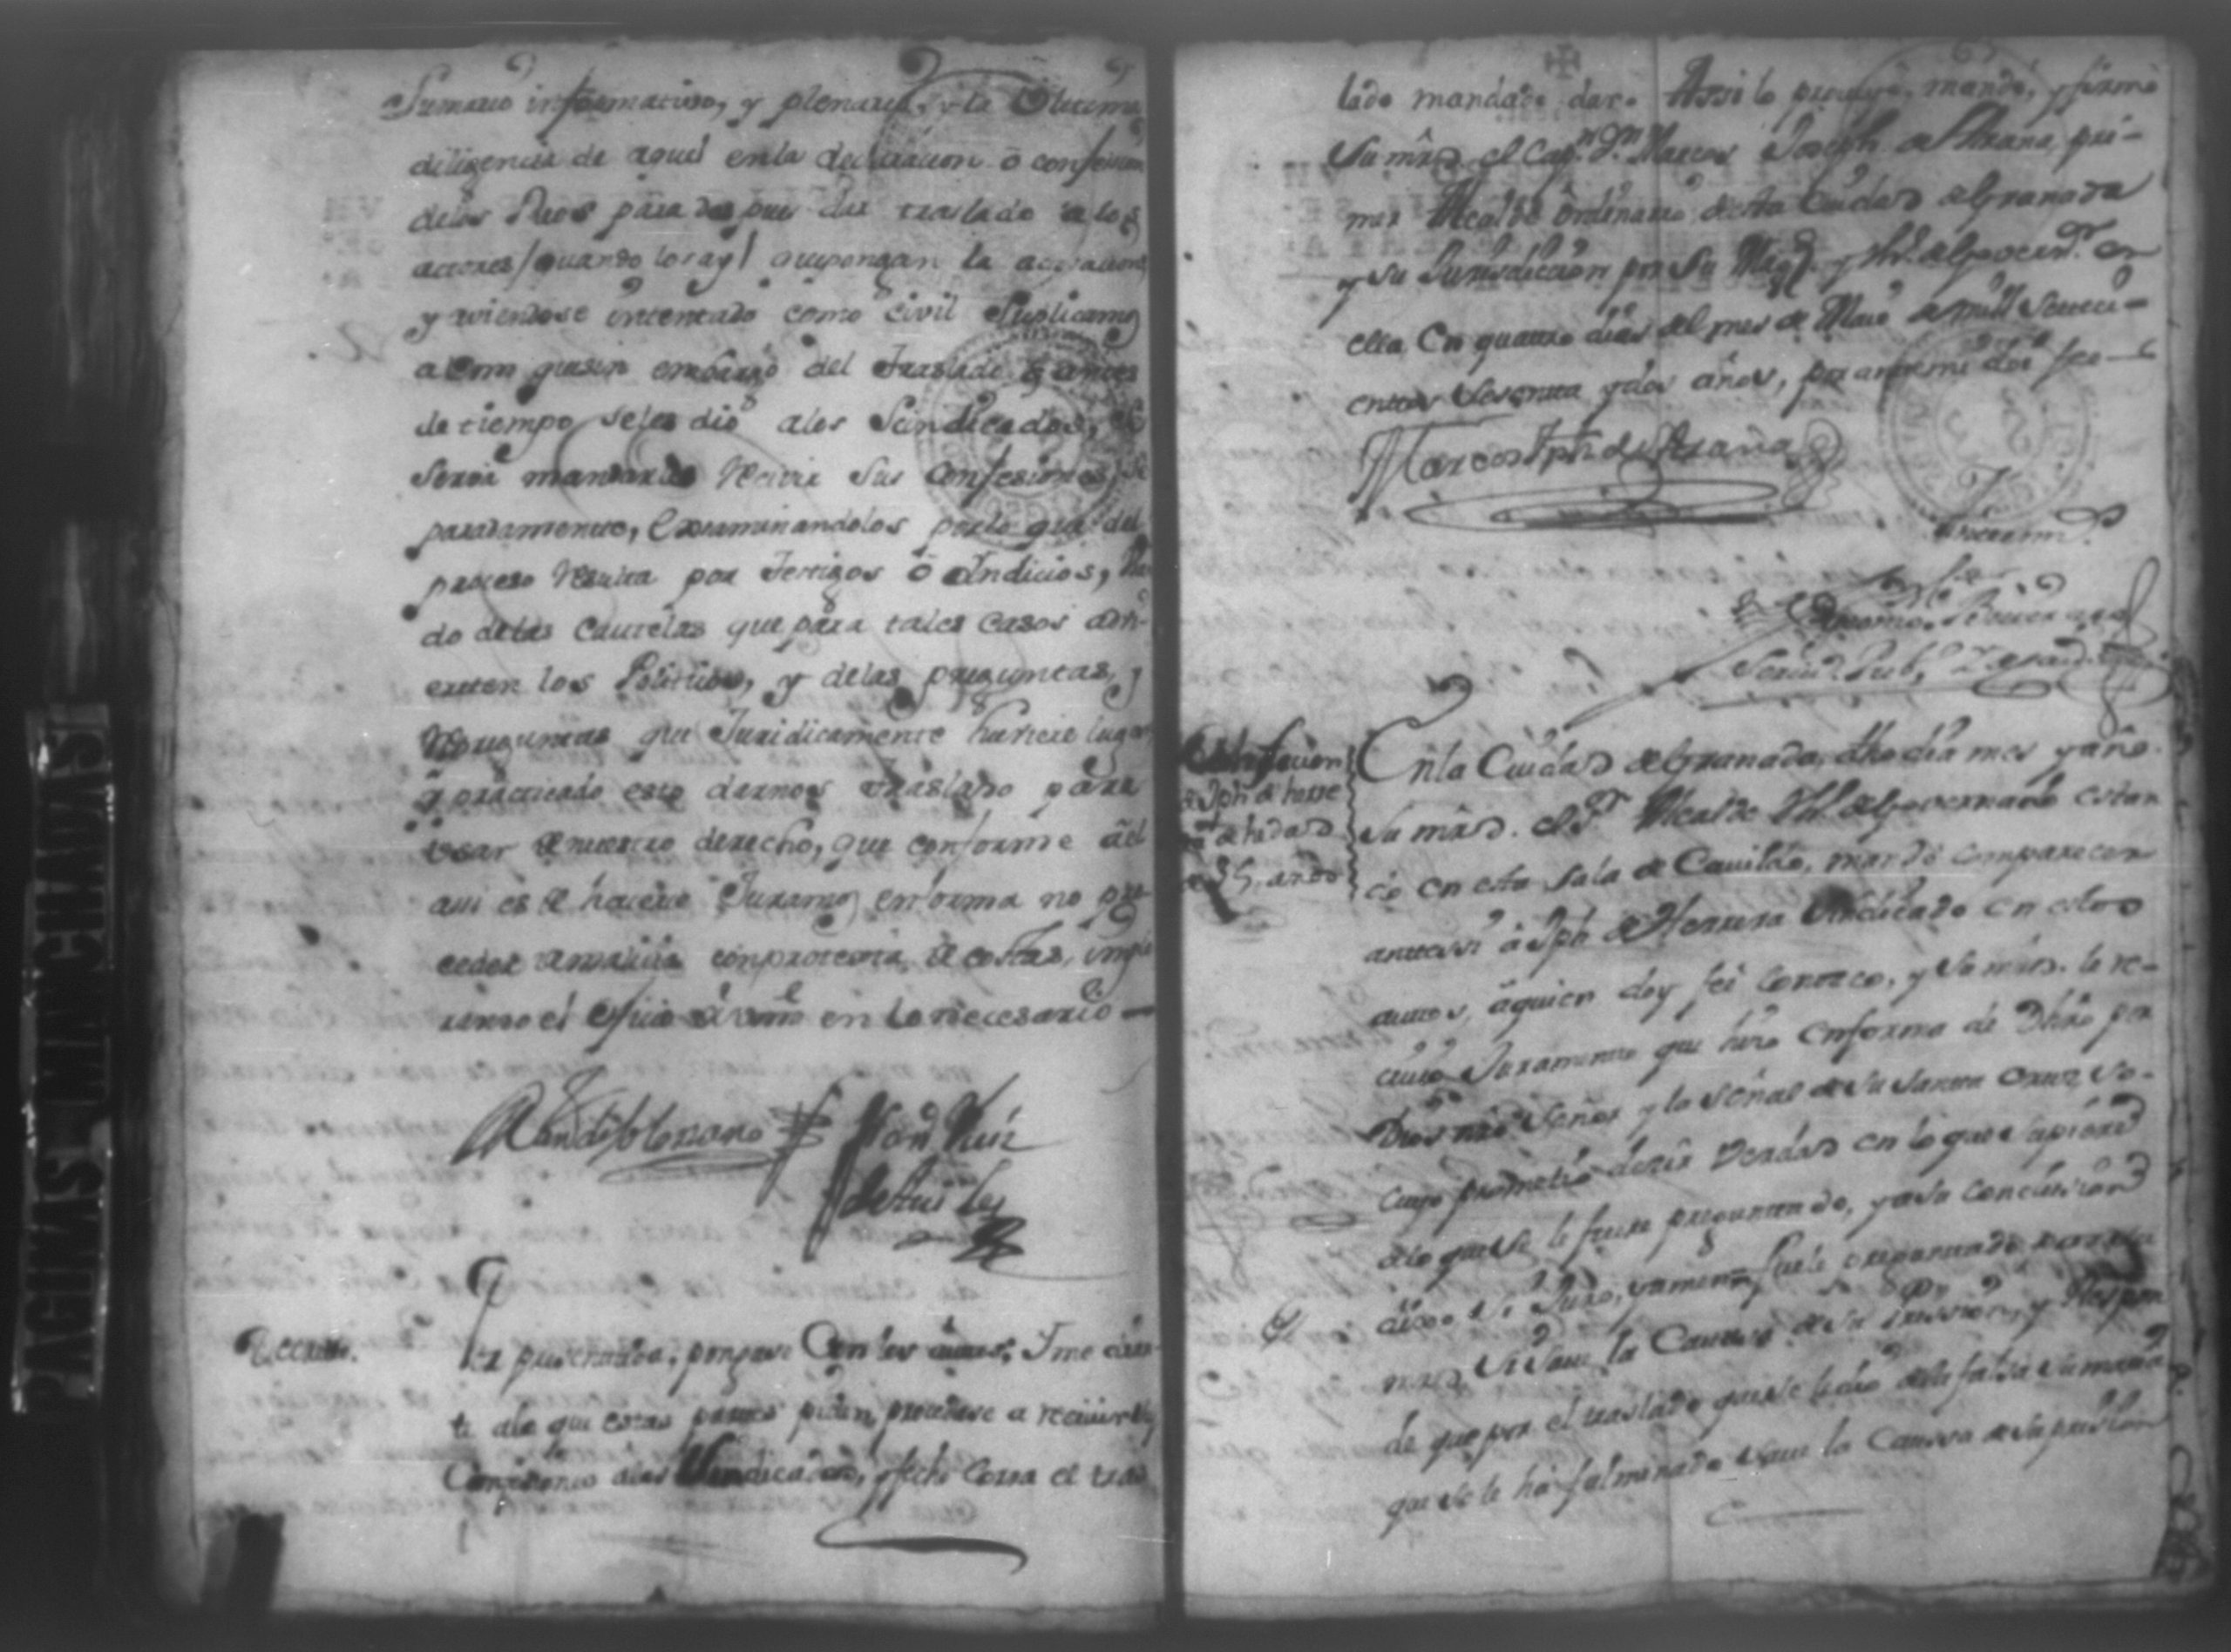 Sumario informativo, y plenario, y la Ultima
diligencia de aquel en la declaracion ô confesion
delos Reos para despues dar traslado a los
actores/quando los ay/ que pongan la acusacion
y aviendose intentado como civil Suplicamos
a Vm que sin embargo del Traslado q antes
de tiempo seles dio alos Sindicados, se
Sirva mandarles Recivir sus Confesiones, se
paradamente, Examinandolos por lo que del
proceso resulta por Testigos ô Indicios,
do delas Cautelas que para tales casos advi-
erten los Politicos, y delas preguntas, y
Repreguntas que Juridicamente huviere lugar
y practicado esto darnos traslado para
Usar de nuestro derecho, que conforme âel
assi es de hacerse Juramos en forma no pro-
ceder de malicia con protexta de costas, implo
ramos el oficio de Vm en lo necesario
Ruiz
de Aui les
Decreto.
Por presentada, pongase Con los autos, Y me cian-
te alo que estas partes piden, procedase a recivirles
Confesiones alos Sindicados, y fecho Corra el tras
lado mandado dar. Assi lo proveyô, mandô, y firmô
Su mrd. el Cap.n D.n Marcos Joseph de Arana, pri-
mer Alcalde ordinario desta Ciudad de Granada
y su Jurisdiccion por Su Mag.d y Th.e de Governr. en
ella En quatro dias del mes de Maio de mill Seteci-
entos Sesenta y dos años, por ante mi doi fee
Marcos Jph de Arana
Ante mi
Serivº Pubº
Confesion
de Jph de herre
ra de hedad
de 35. años
En la Ciudad de Granada, dho dia mes y año
Su mrd. el Sr. Alcalde Th.e de Governador estan
do en esta Sala de Cavildo, mandô comparecer
ante si â Jph de Herrera Sindicado en estos
autos, âquien doy feê Conosco, y Su mrd. le re-
civiô Juramento que hizo Enforma de Dhro por
Dios nro Señor y la Señal de Su Santa Cruz so
Cuyo prometiô desir Verdad en lo que supiere
de lo que se le fuere preguntando, y a su conclusion
dixo Si Juro, y amen. Fuele preguntado
Si Save la Causa de Su prission, y Respon
de que por el traslado que se le dio dela falsa Sumaria
que se le ha fulminado save la Causa de su prission
PAGINAS MANCHADAS